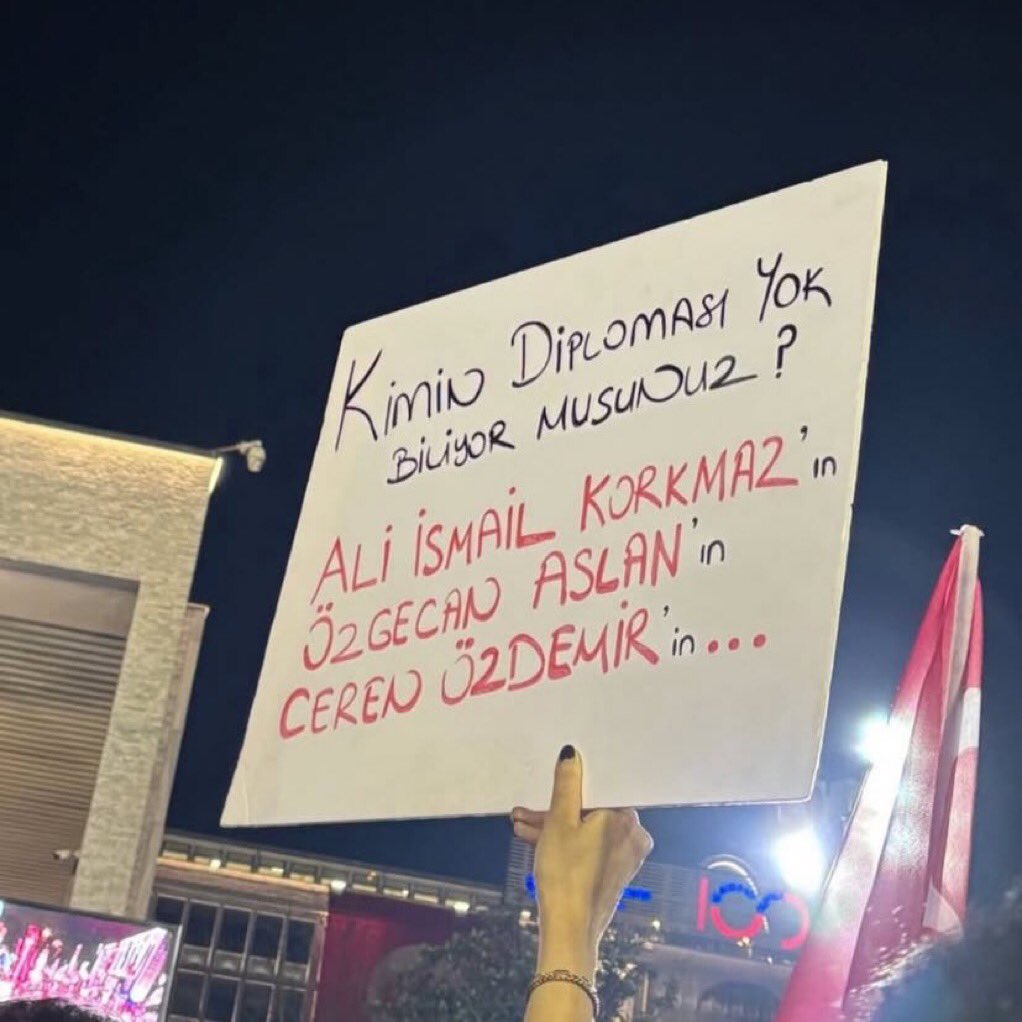 KiMiN DiPLOMASI YOK
BiLiYOR MUSUNUZ?
ALİ İSMAİL KORKMAZ'ın
ÖZGECAN ASLAN'ın
CEREN ÖZDEMİR'in...
100